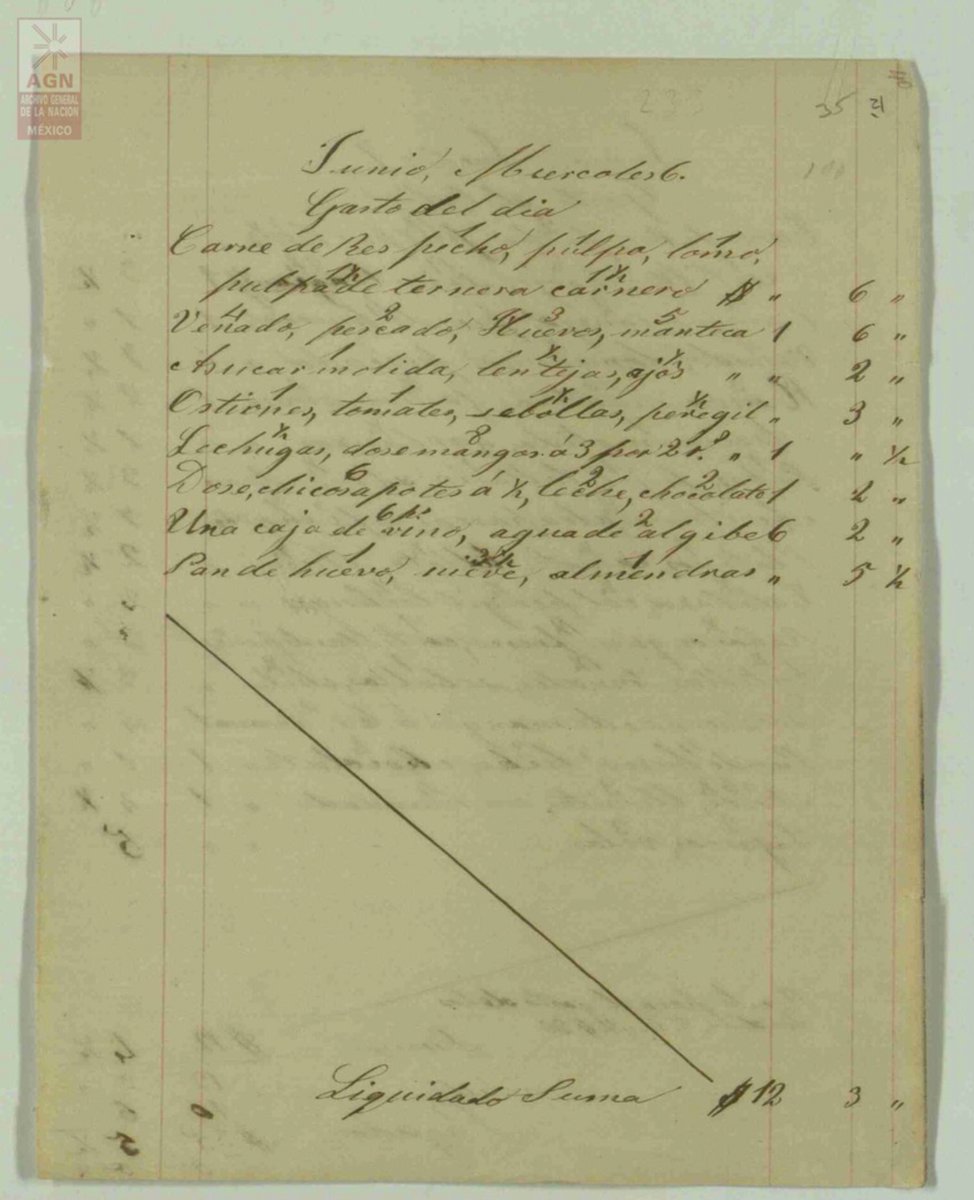 AGN
ARCHIVO GENERAL
DE LA NACION
MÉXICO
35 21
Junio, Miercoles 6.
Gasto del dia
Carne de Res pecho, pulpa, lomo,
pulpa de ternera carnero $ „ 6 „
Venado, pescado, Huevos, manteca 1 6 „
Asucar molida, lentejas, ajos „ „ 2 „
Ostiones, tomates, sebollas, peregil „ 3 „
Lechugas, dose mangos á 3 por 2 r.s „ 1 „ ½
Dose, chicosapotes á ½, leche, chocolate 1 2 „
Una caja de vino, agua de algibe 6 2 „
Pan de huevo, nieve, almendras „ 5 ½
Liquidado Suma $ 12 3 „